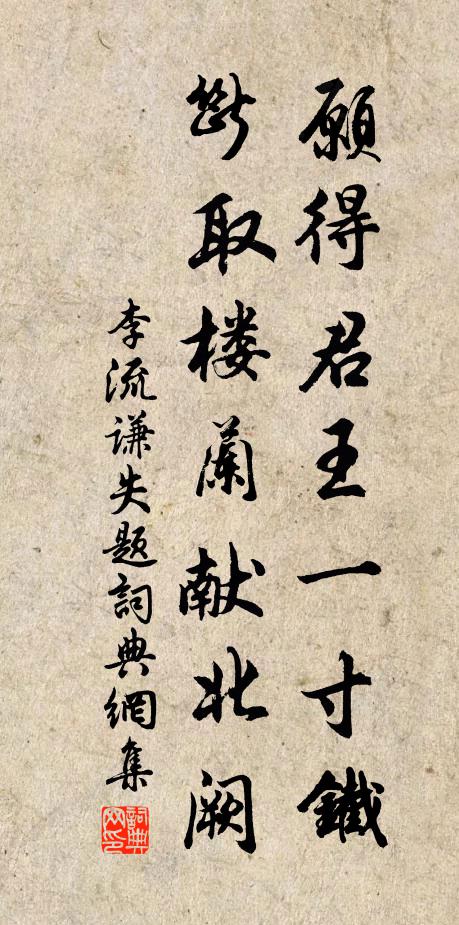 願得君王一寸鐵
斷取楼蘭献北阙
李流谦失题詞典網集
詞典网印